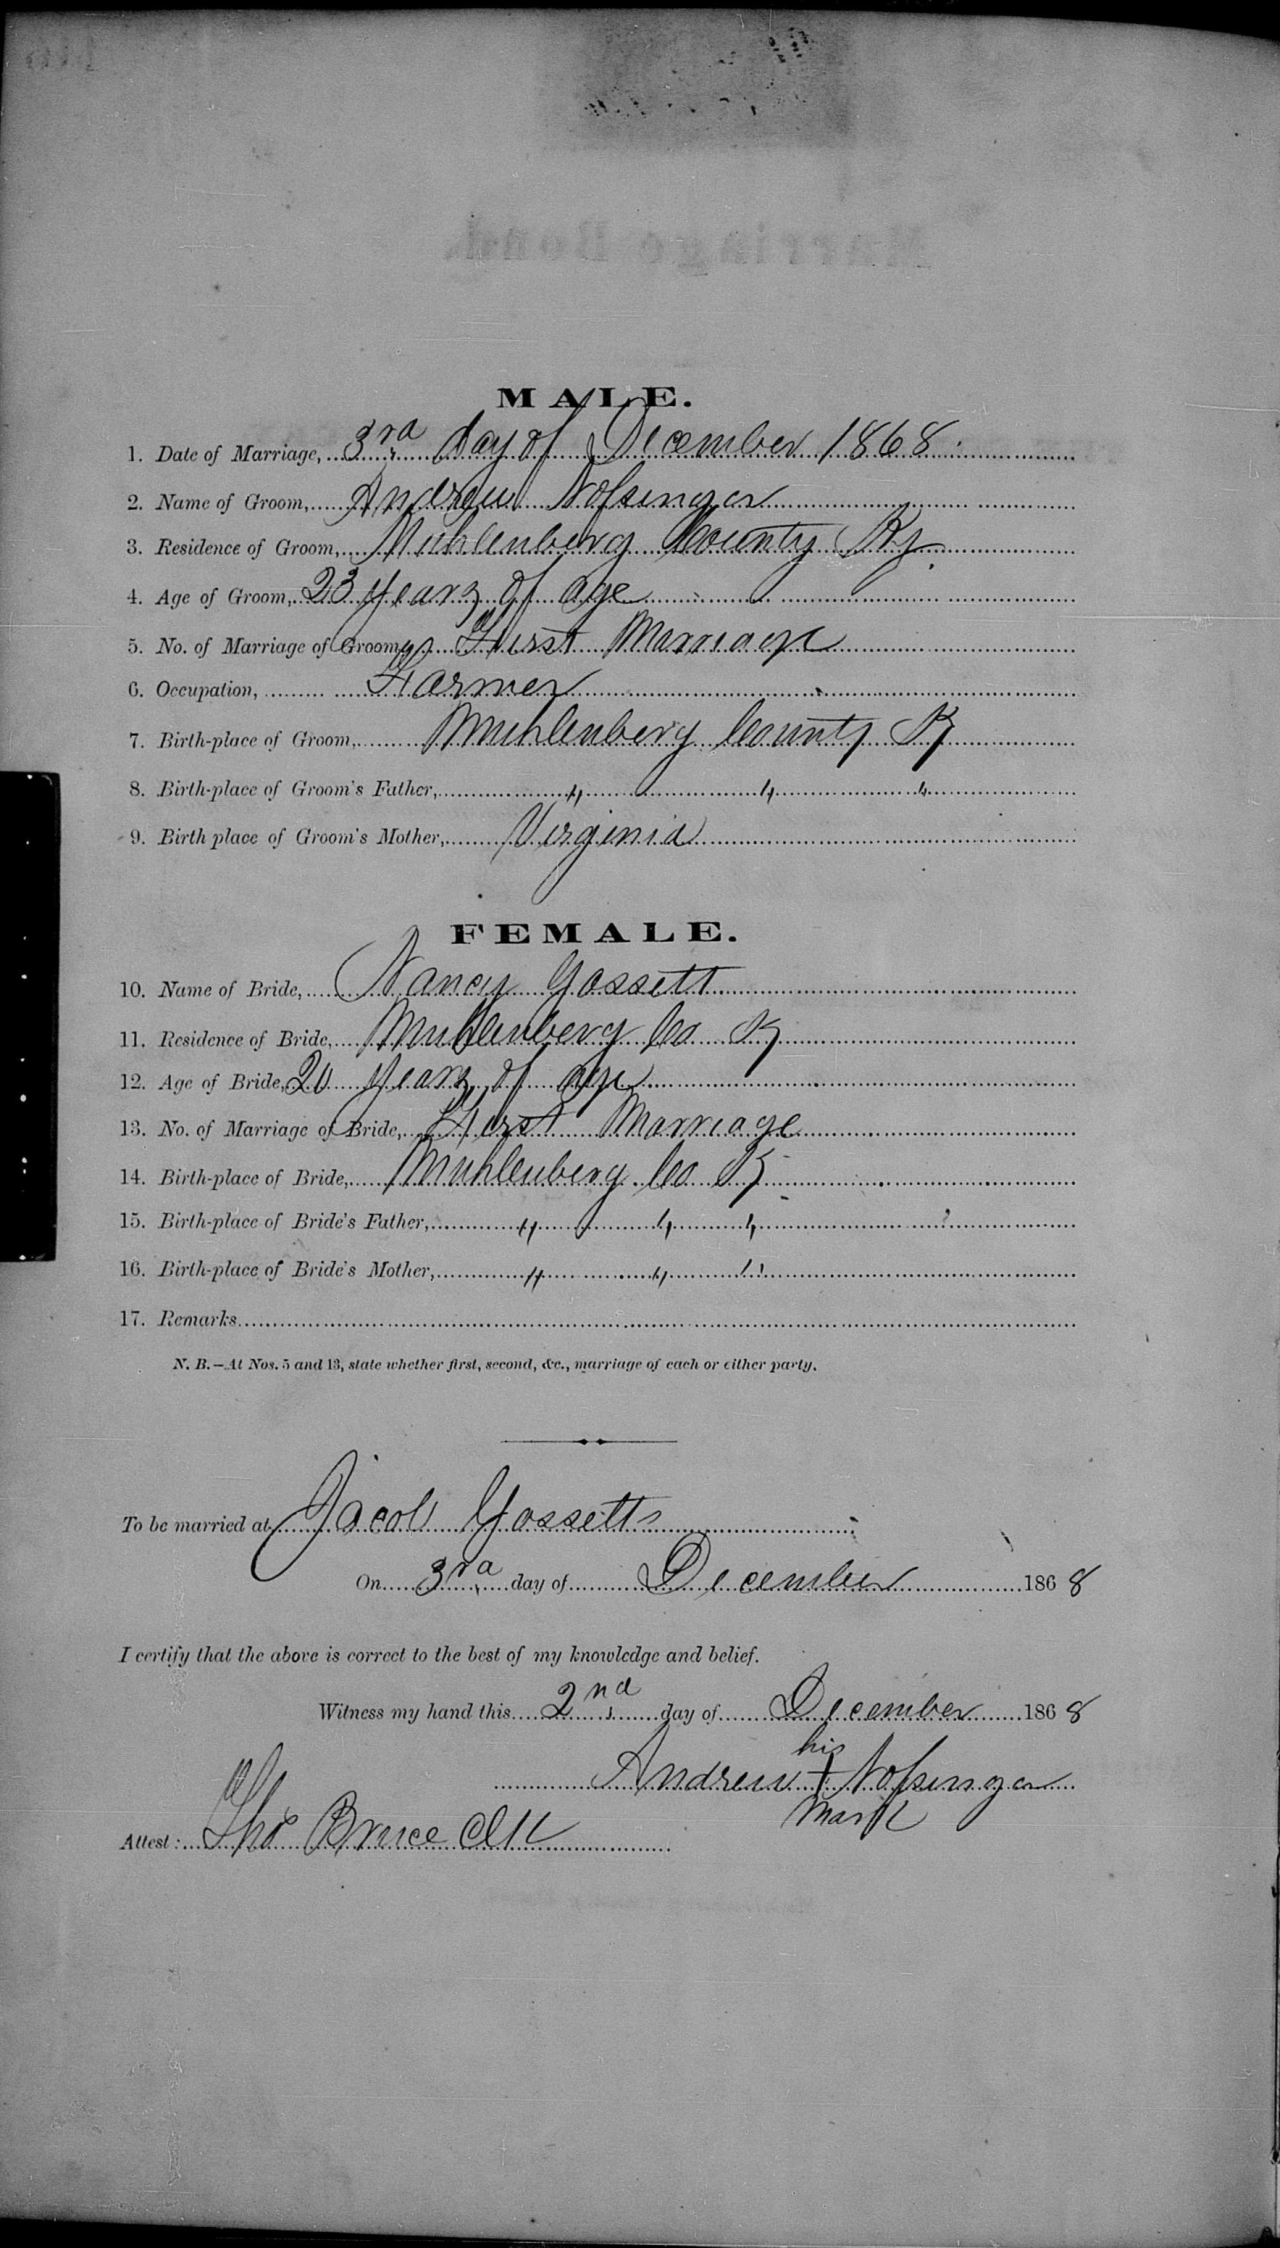 MALE.
1. Date of Marriage, 3rd day of December 1868.
2. Name of Groom, Andrew Nofsinger
3. Residence of Groom, Muhlenberg County Ky.
4. Age of Groom, 23 years of age
5. No. of Marriage of Groom, First Marriage
6. Occupation, Farmer
7. Birth-place of Groom, Muhlenberg County Ky
8. Birth-place of Groom's Father, " " "
9. Birth place of Groom's Mother, Virginia
FEMALE.
10. Name of Bride, Nancy Gossett
11. Residence of Bride, Muhlenberg Co Ky
12. Age of Bride, 20 years of age
13. No. of Marriage of Bride, First Marriage
14. Birth-place of Bride, Muhlenberg Co Ky
15. Birth-place of Bride's Father, " " "
16. Birth-place of Bride's Mother, " " "
17. Remarks
N. B.—At Nos. 5 and 13, state whether first, second, &c., marriage of each or either party.
To be married at Jacob Gossetts
On 3rd day of December 1868
I certify that the above is correct to the best of my knowledge and belief.
Witness my hand this 2nd day of December 1868
his
Andrew + Nofsinger
mark
Attest: Tho Bruce Clk